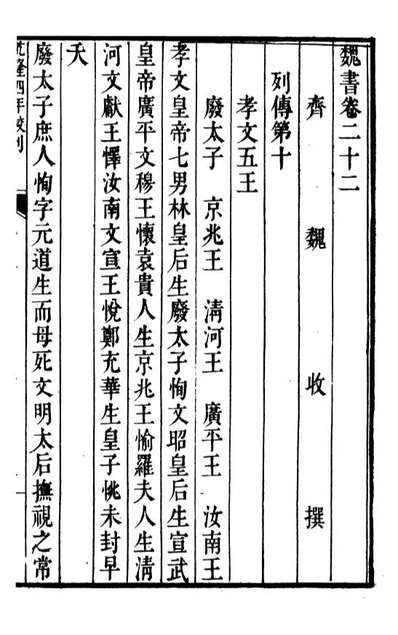 魏書卷二十二
齊魏收撰
列傳第十
孝文五王
廢太子 京兆王 清河王 廣平王 汝南王
孝文皇帝七男林皇后生廢太子恂文昭皇后生宣武
皇帝廣平文穆王懷袁貴人生京兆王愉羅夫人生清
河文獻王懌汝南文宣王悅鄭充華生皇子恌未封早
夭
廢太子庶人恂字元道生而母死文明太后撫視之常
乾隆四年校刊